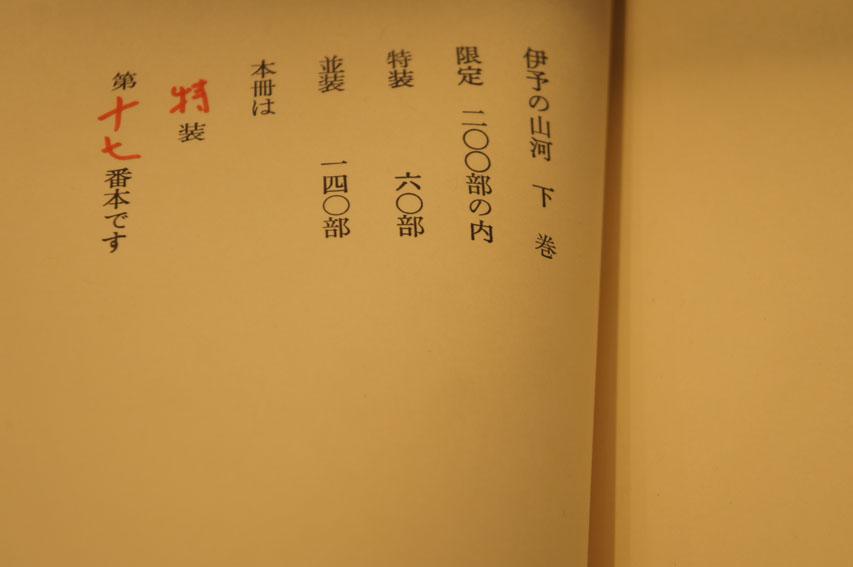 伊予の山河 下巻
限定 二〇〇部の内
特装 六〇部
並装 一四〇部
本冊は
特装
第十七番本です